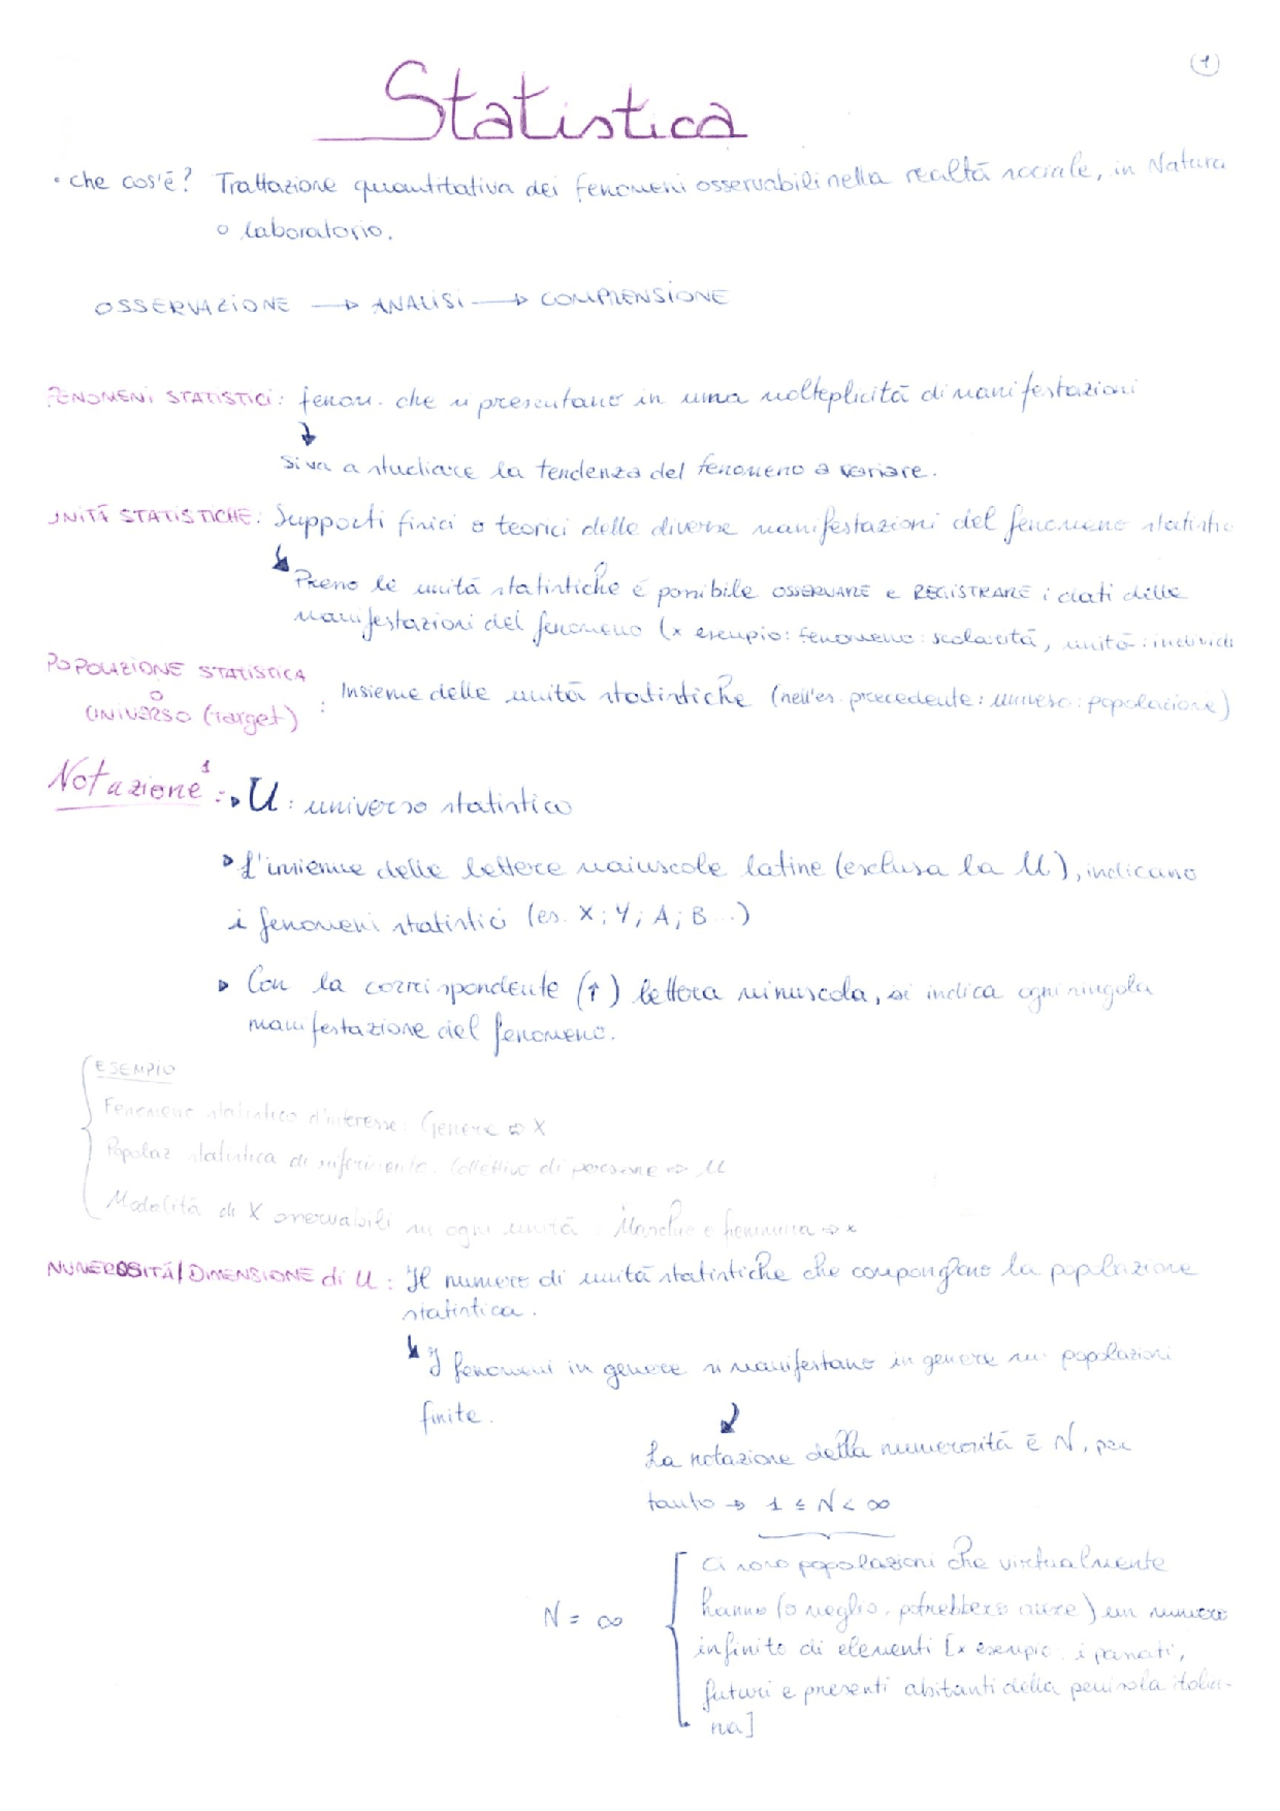 1
Statistica
• che cos'è? Trattazione quantitativa dei fenomeni osservabili nella realtà sociale, in Natura
o laboratorio.
OSSERVAZIONE → ANALISI → COMPRENSIONE
FENOMENI STATISTICI: fenom. che si presentano in una molteplicità di manifestazioni
↓
Si va a studiare la tendenza del fenomeno a variare.
UNITÀ STATISTICHE: Supporti fisici o teorici delle diverse manifestazioni del fenomeno statistic
↳ Presso le unità statistiche è possibile OSSERVARE e REGISTRARE i dati delle
manifestazioni del fenomeno (x esempio: fenomeno: scolarità, unità: individui
POPOLAZIONE STATISTICA
o
UNIVERSO (Target)
: Insieme delle unità statistiche (nell'es. precedente: universo: popolazione)
Notazione¹ :
▹ U: universo statistico
▹ L'insieme delle lettere maiuscole latine (esclusa la U), indicano
i fenomeni statistici (es. X; Y; A; B...)
▹ Con la corrispondente (↑) lettera minuscola, si indica ogni singola
manifestazione del fenomeno.
ESEMPIO
Fenomeno statistico d'interesse: Genere ⇨ X
Popolaz statistica di riferimento. Collettivo di persone ⇨ U
Modalità di X osservabili su ogni unità: Maschio e femmina ⇨ x
NUMEROSITÀ/DIMENSIONE di U: Il numero di unità statistiche che compongono la popolazione
statistica.
↳ I fenomeni in genere si manifestano in genere su popolazioni
finite.
↓
La notazione della numerosità è N, per
tanto → 1 ≤ N < ∞
N = ∞
Ci sono popolazioni che virtualmente
hanno (o meglio, potrebbero avere) un numero
infinito di elementi [x esempio: i passati,
futuri e presenti abitanti della penisola italia-
na]